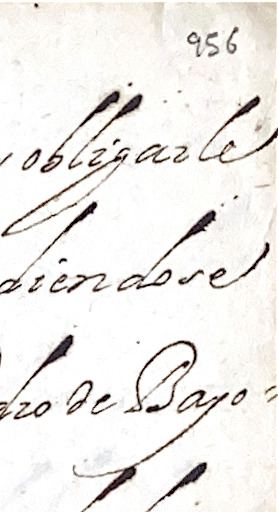 956
y obligarle
diendose
dro de Bayo=